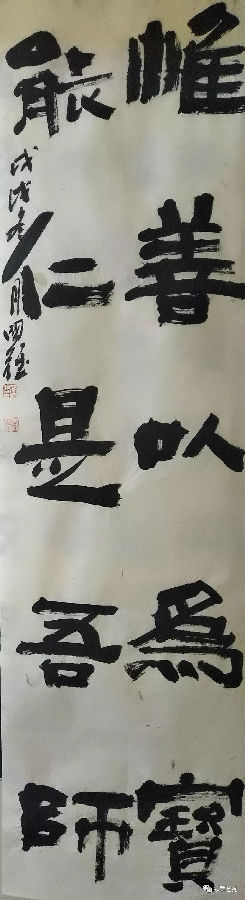 惟善以為寶
能仁是吾師
戊戌冬月